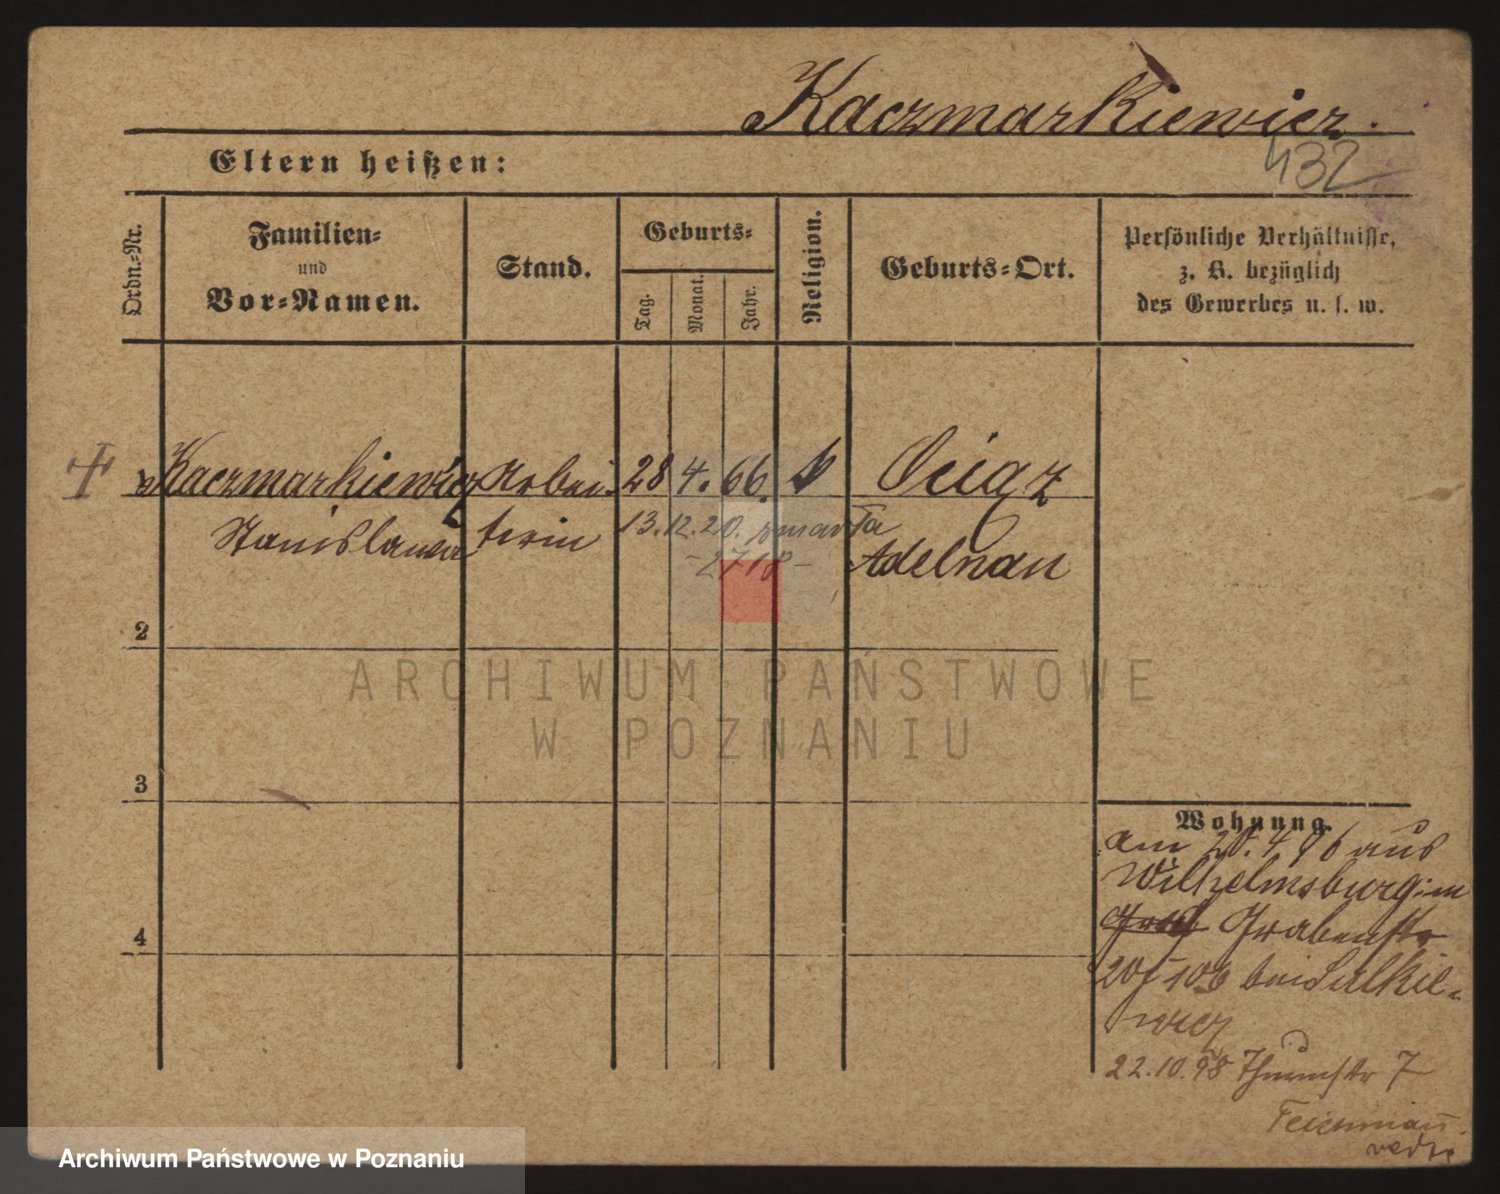 Kaczmarkiewicz.
432
Eltern heißen:
Ordn.-Nr.
Familien-
und
Vor-Namen.
Stand.
Geburts-
Tag.
Monat.
Jahr.
Religion.
Geburts-Ort.
Persönliche Verhältnisse,
z. B. bezüglich
des Gewerbes u. s. w.
Kaczmarkiewicz Arbei- 28 4. 66. k Ociąz
Stanislawa terin 13.12.20. zmarła
-2718- Adelnau
2
3
4
ARCHIWUM PAŃSTWOWE
W POZNANIU
Wohnung.
am 20.4 96 aus
Wilhelmsburg in
Grabenstr
20 bei
wicz
22.10.98 Thurmstr 7
Archiwum Państwowe w Poznaniu